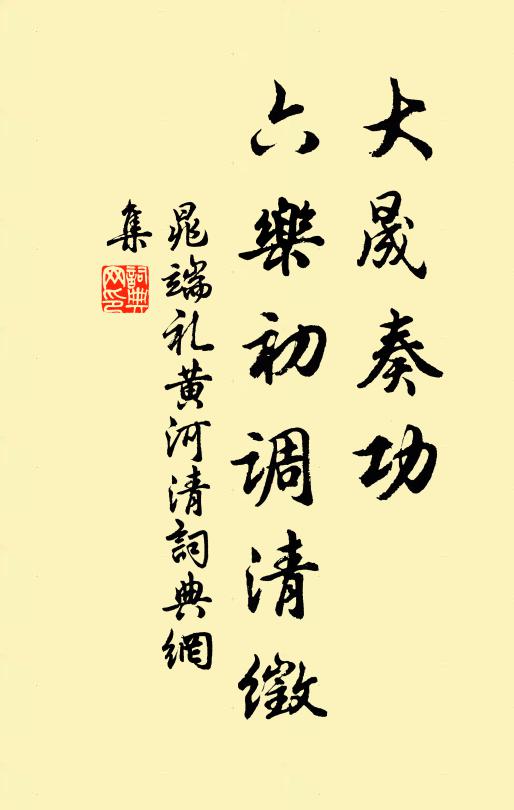 大晟奏功
六樂初调清徵
晁端礼黄河清詞典網
集
詞典
网印